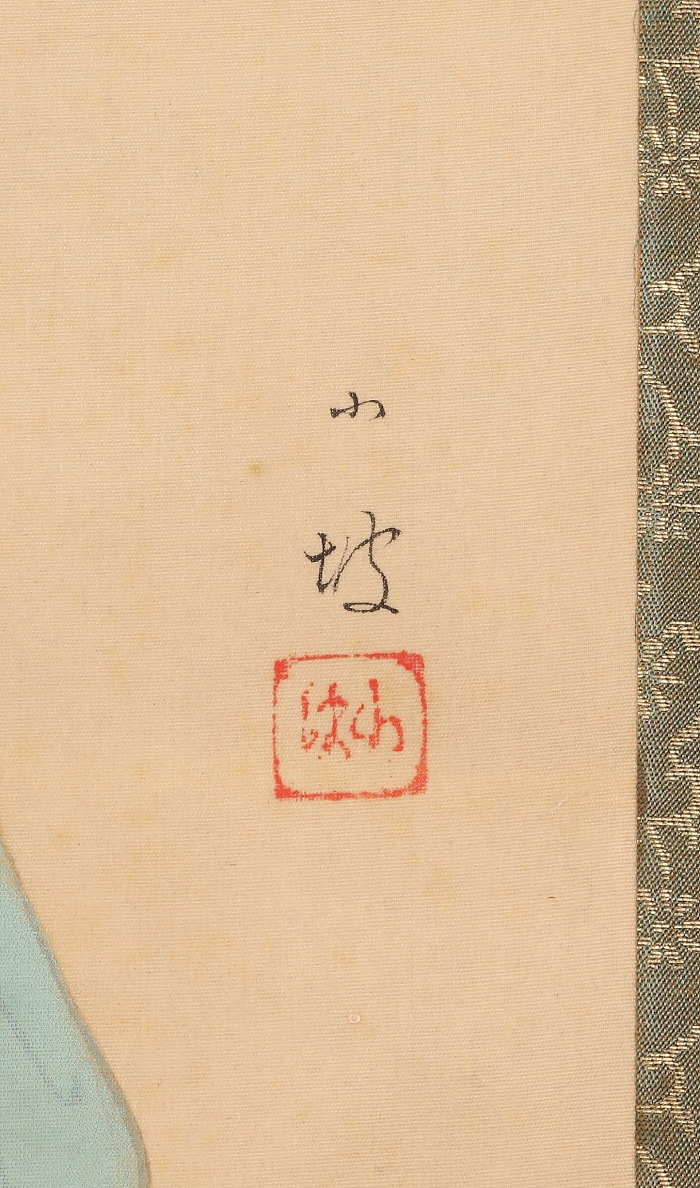 小
坡
小坡